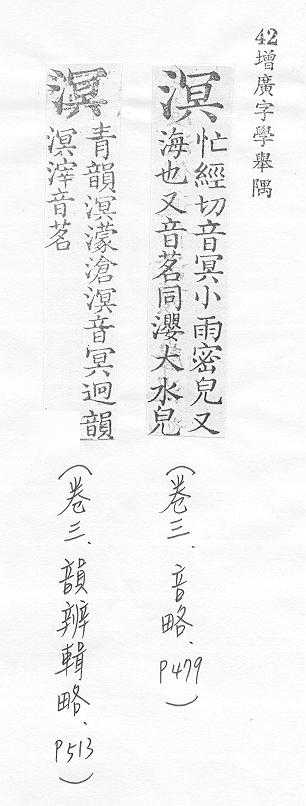 42增廣字學舉隅
溟
忙經切音冥小雨密皃又
海也又音茗同㵾大水皃
(卷三、音略、P479)
溟
青韻溟濛滄溟音冥迥韻
溟涬音茗
(卷三、韻辨輯略、P513)